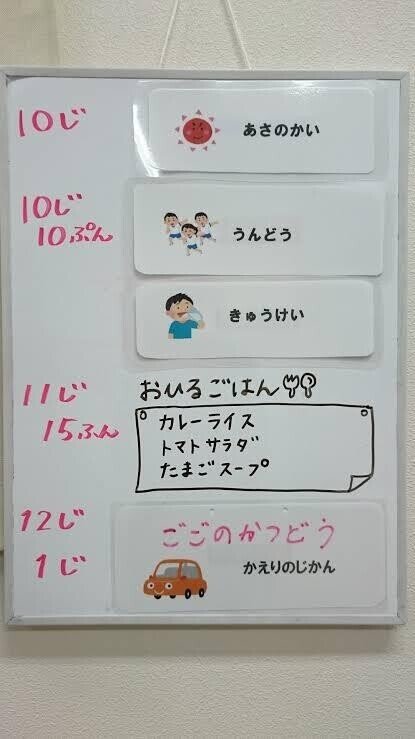 10じ あさのかい
10じ
10ぷん うんどう
きゅうけい
11じ おひるごはん
15ふん カレーライス
トマトサラダ
たまごスープ
12じ ごごのかつどう
1じ かえりのじかん